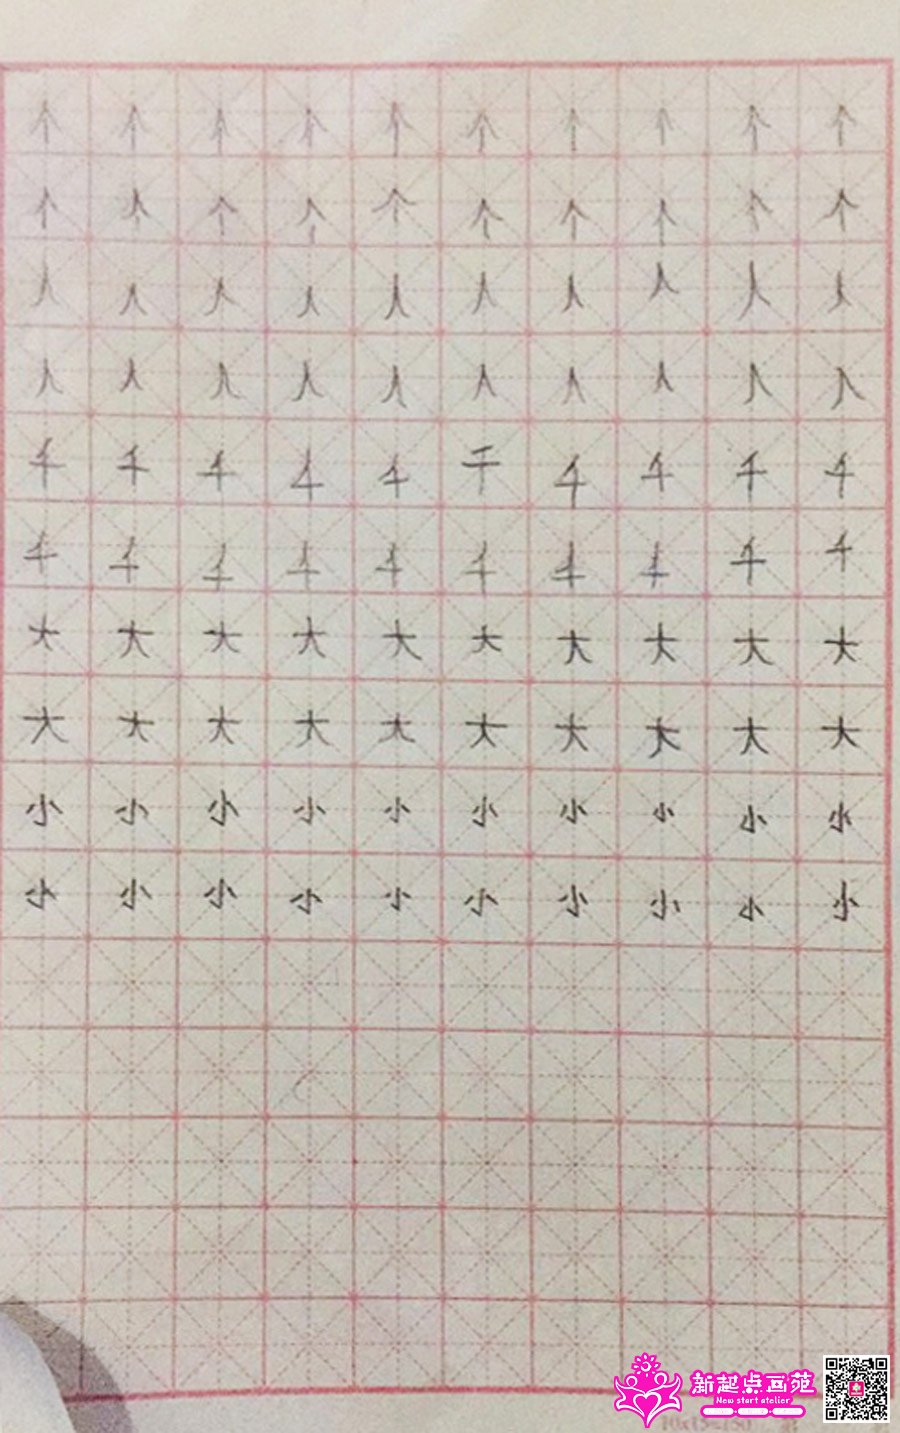 个个个个个个个个个个
个个个个个个个个个个
人人人人人人人人人人
人人人人人人人人人人
千千千千千千千千千千
千千千千千千千千千千
大大大大大大大大大大
大大大大大大大大大大
小小小小小小小小小小
小小小小小小小小小小
新起点画苑
New start atelier
10x15=150